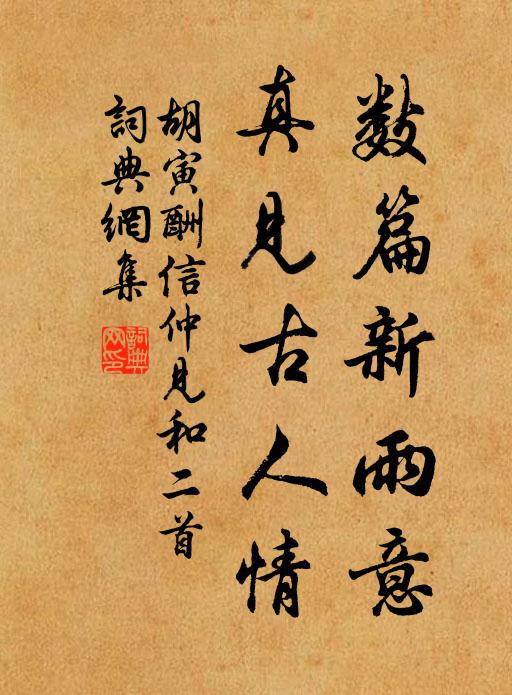 数篇新雨意
真見古人情
胡寅酬信仲見和二首
詞典網集
詞典网印